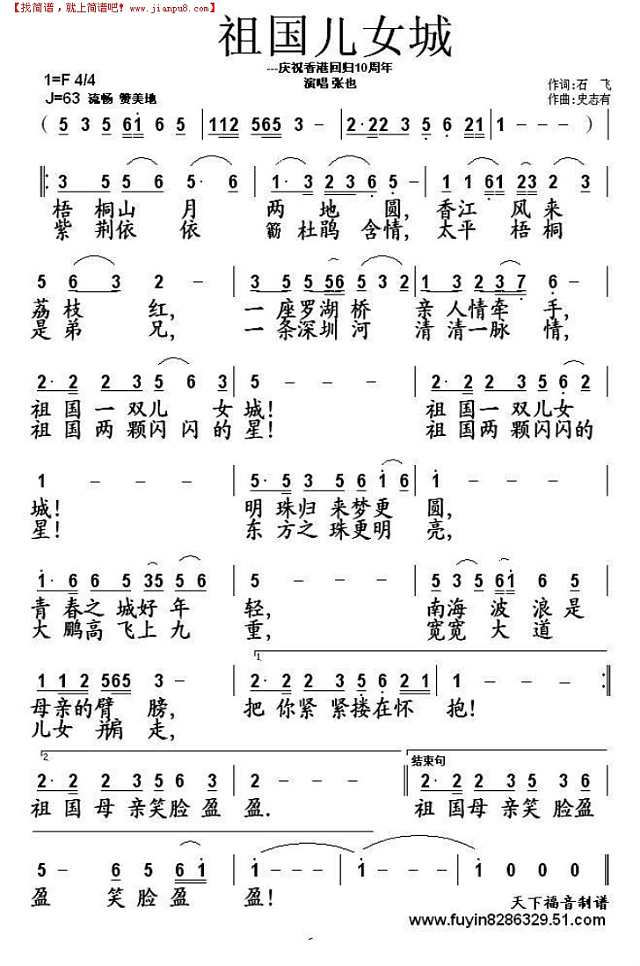 【找简谱，就上简谱吧! www.jianpu8.com】
祖国儿女城
---庆祝香港回归10周年
1=F 4/4
演唱 张也
作词:石 飞
J=63 流畅 赞美地
作曲:史志有
( 5 3 5 61 6 5 | 1112 3265 3 - | 2·22 3 5 6 21 | 1 - - - )
3 5 5 6 5· 6 | 3 1· 3 2 3 6 5 - | 1 1 61 23 3· 2
梧 桐山 月 两 地 圆, 香江 风来
紫 荆依 依 簕 杜鹃 含情, 太平 梧桐
5 6 3 2 - | 3· 3 2 5 56 5 3 2 | 1 3 2 3 7 6 -
荔 枝 红, 一 座罗 湖桥 亲 人情牵 手,
是 弟 兄, 一 条深 圳河 清 清一脉 情,
2· 2 2 3 5 6 3 | 5 - - - | 2· 2 2 3 5 6 2
祖 国 一 双儿 女 城! 祖 国一 双儿女
祖 国 两 颗闪 闪 的 星! 祖 国两 颗闪闪的
1 - - - | 5· 5 3 5 6 1 6 | 5 - - -
城! 明 珠归 来梦更 圆,
星! 东 方之 珠更明 亮,
1· 6 5 3 35 5 6 | 5 - - - | 5 3 5 61 6 5
青 春之 城好 年 轻, 南海 波 浪 是
大 鹏高 飞上 九 重, 宽宽 大 道
1 1 2 565 3 - | 1. 2· 2 2 3 5 6 21 | 1 - - -
母 亲的 臂 膀, 把 你 紧 紧搂在怀 抱!
儿女 并肩 走,
2. 2· 2 2 3 5 6 | 5 - - - | 结束句 2· 2 2 3 5 6
祖 国 母 亲笑脸 盈 盈. 祖 国母 亲笑脸 盈
5 - 6 5 6 1 | 1 - - - | 1 - - - | 1 0 0 0
盈 笑脸 盈 盈!
天下福音制谱
www.fuyin8286329.51.com/